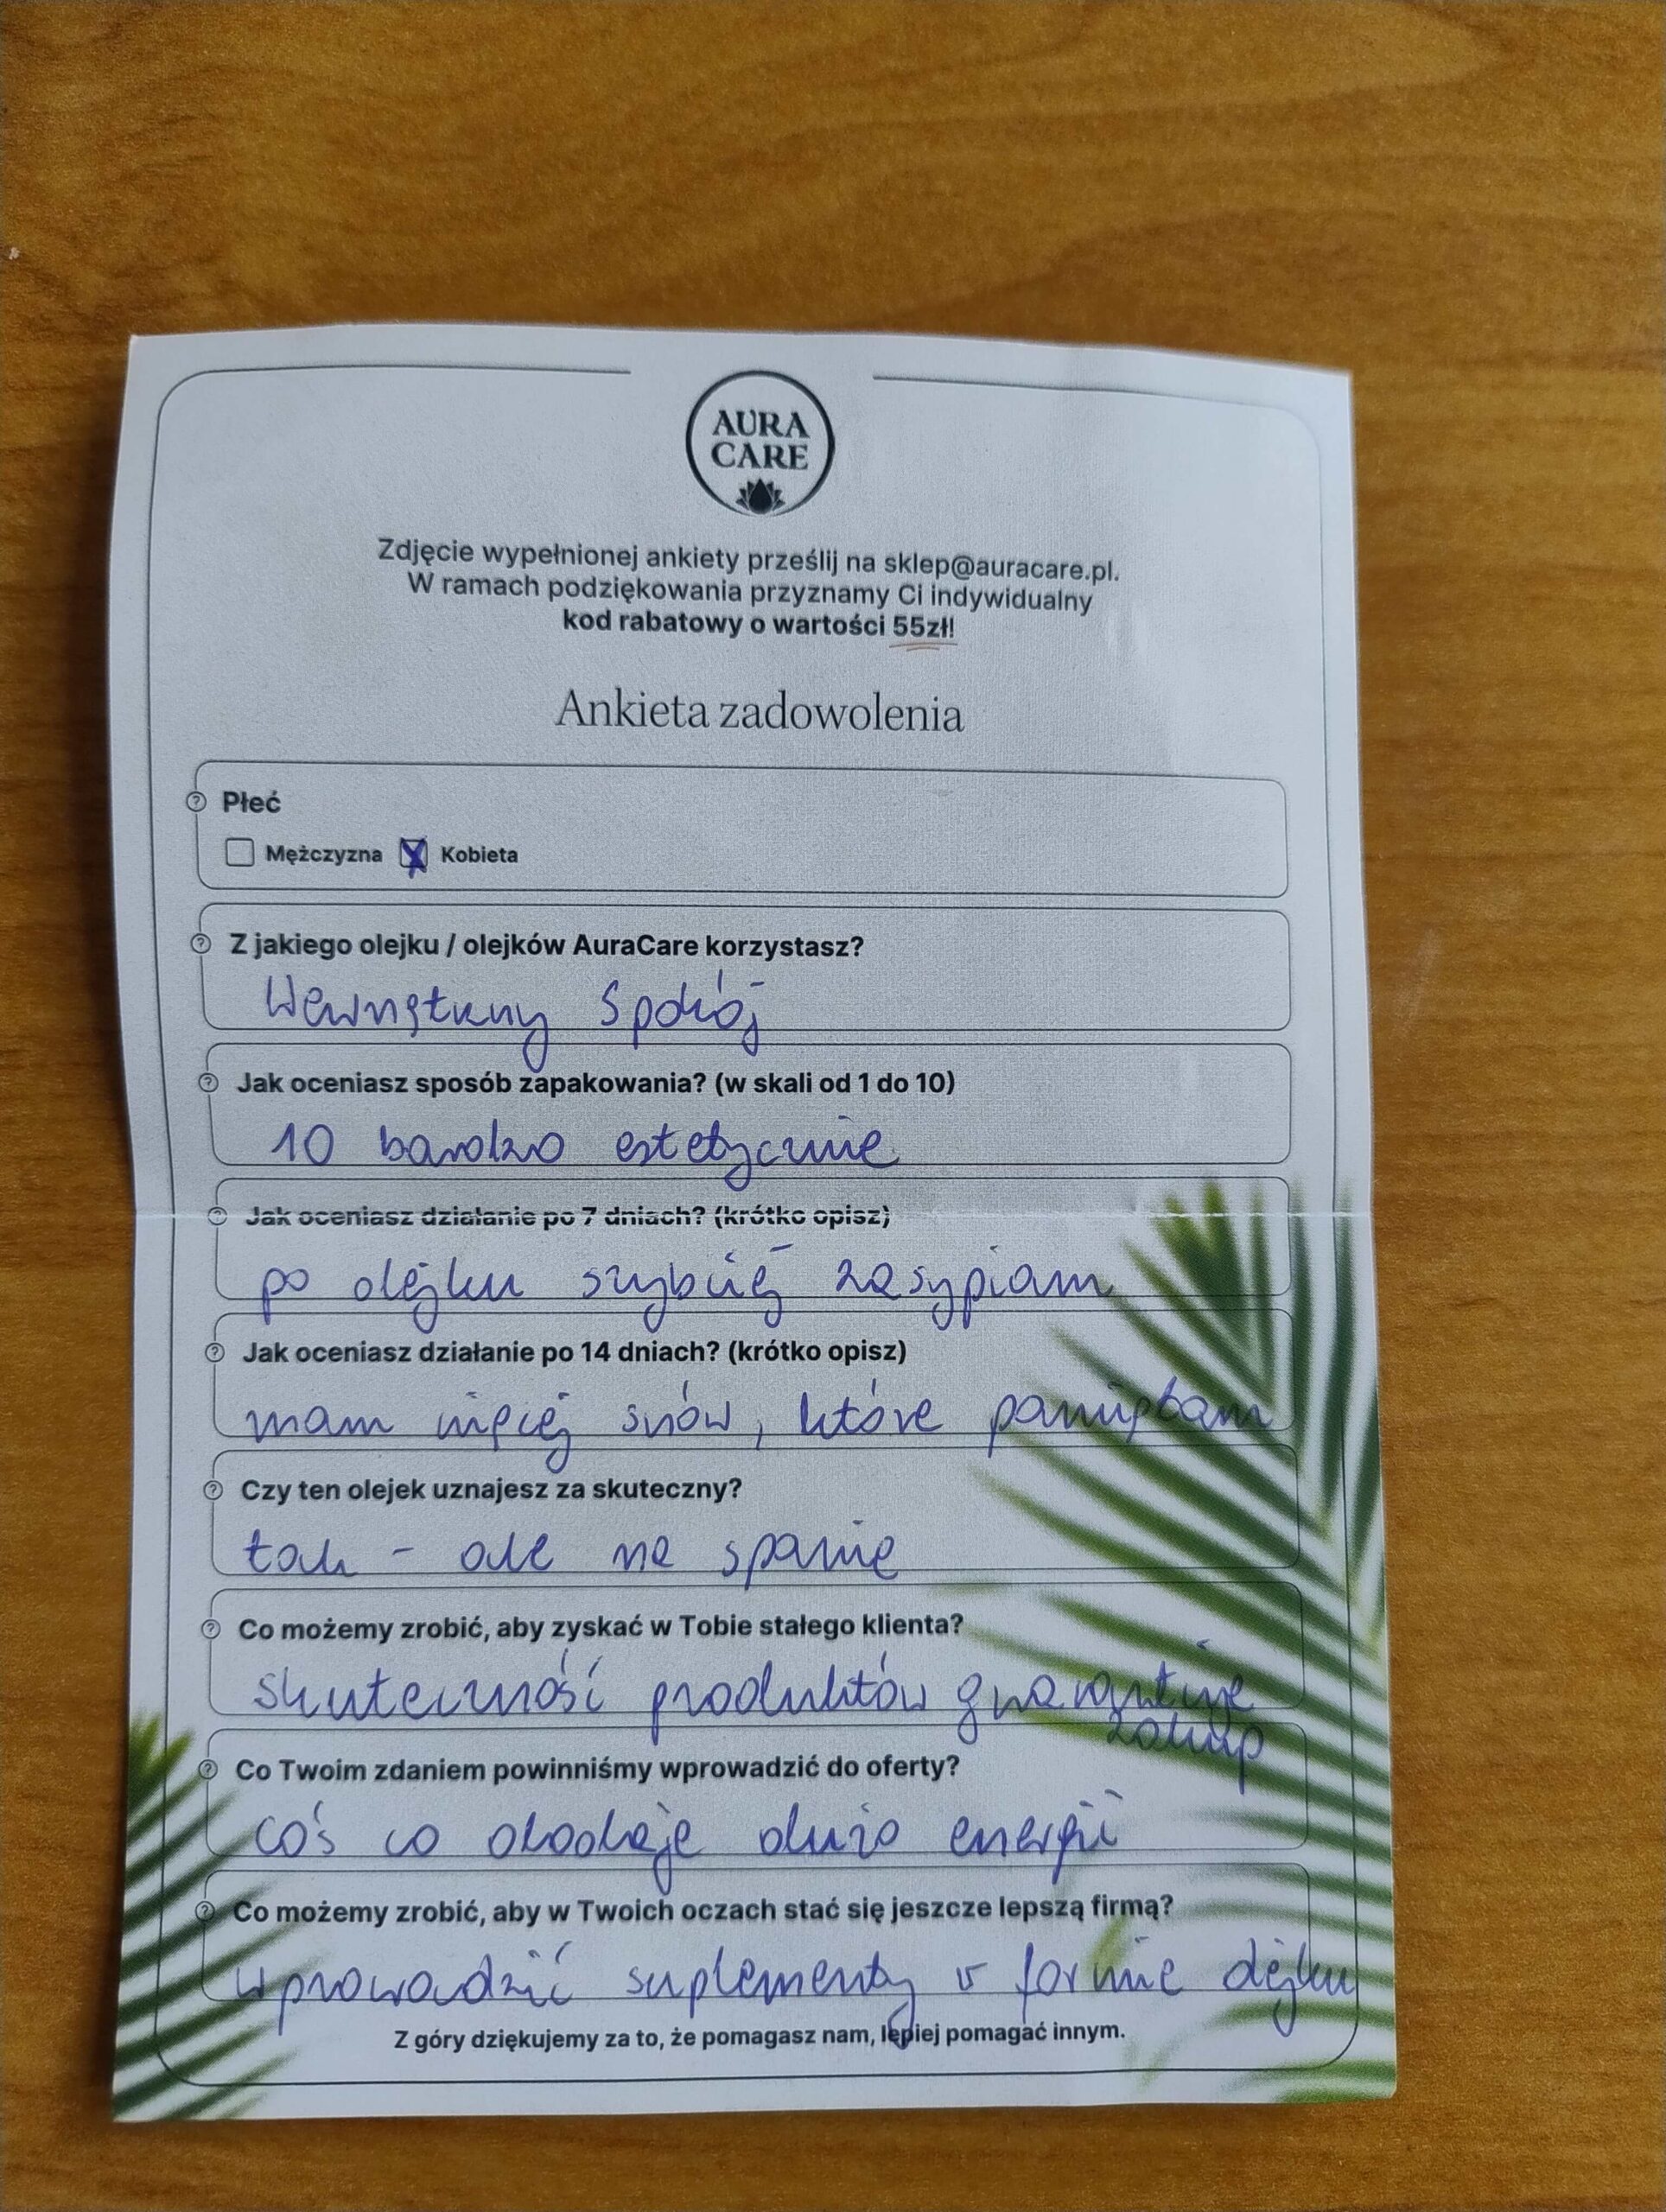 AURA
CARE
Zdjęcie wypełnionej ankiety prześlij na sklep@auracare.pl.
W ramach podziękowania przyznamy Ci indywidualny
kod rabatowy o wartości 55zł!
Ankieta zadowolenia
Płeć
Mężczyzna X Kobieta
Z jakiego olejku / olejków AuraCare korzystasz?
Wewnętrzny Spokój
Jak oceniasz sposób zapakowania? (w skali od 1 do 10)
10 bardzo estetycznie
Jak oceniasz działanie po 7 dniach? (krótko opisz)
po olejku szybciej zasypiam
Jak oceniasz działanie po 14 dniach? (krótko opisz)
mam więcej snów, które pamiętam
Czy ten olejek uznajesz za skuteczny?
tak - ale na spanie
Co możemy zrobić, aby zyskać w Tobie stałego klienta?
skuteczność produktów gwarantuje
zakup
Co Twoim zdaniem powinniśmy wprowadzić do oferty?
coś co dodaje dużo energii
Co możemy zrobić, aby w Twoich oczach stać się jeszcze lepszą firmą?
wprowadzić suplementy w formie olejku
Z góry dziękujemy za to, że pomagasz nam, lepiej pomagać innym.